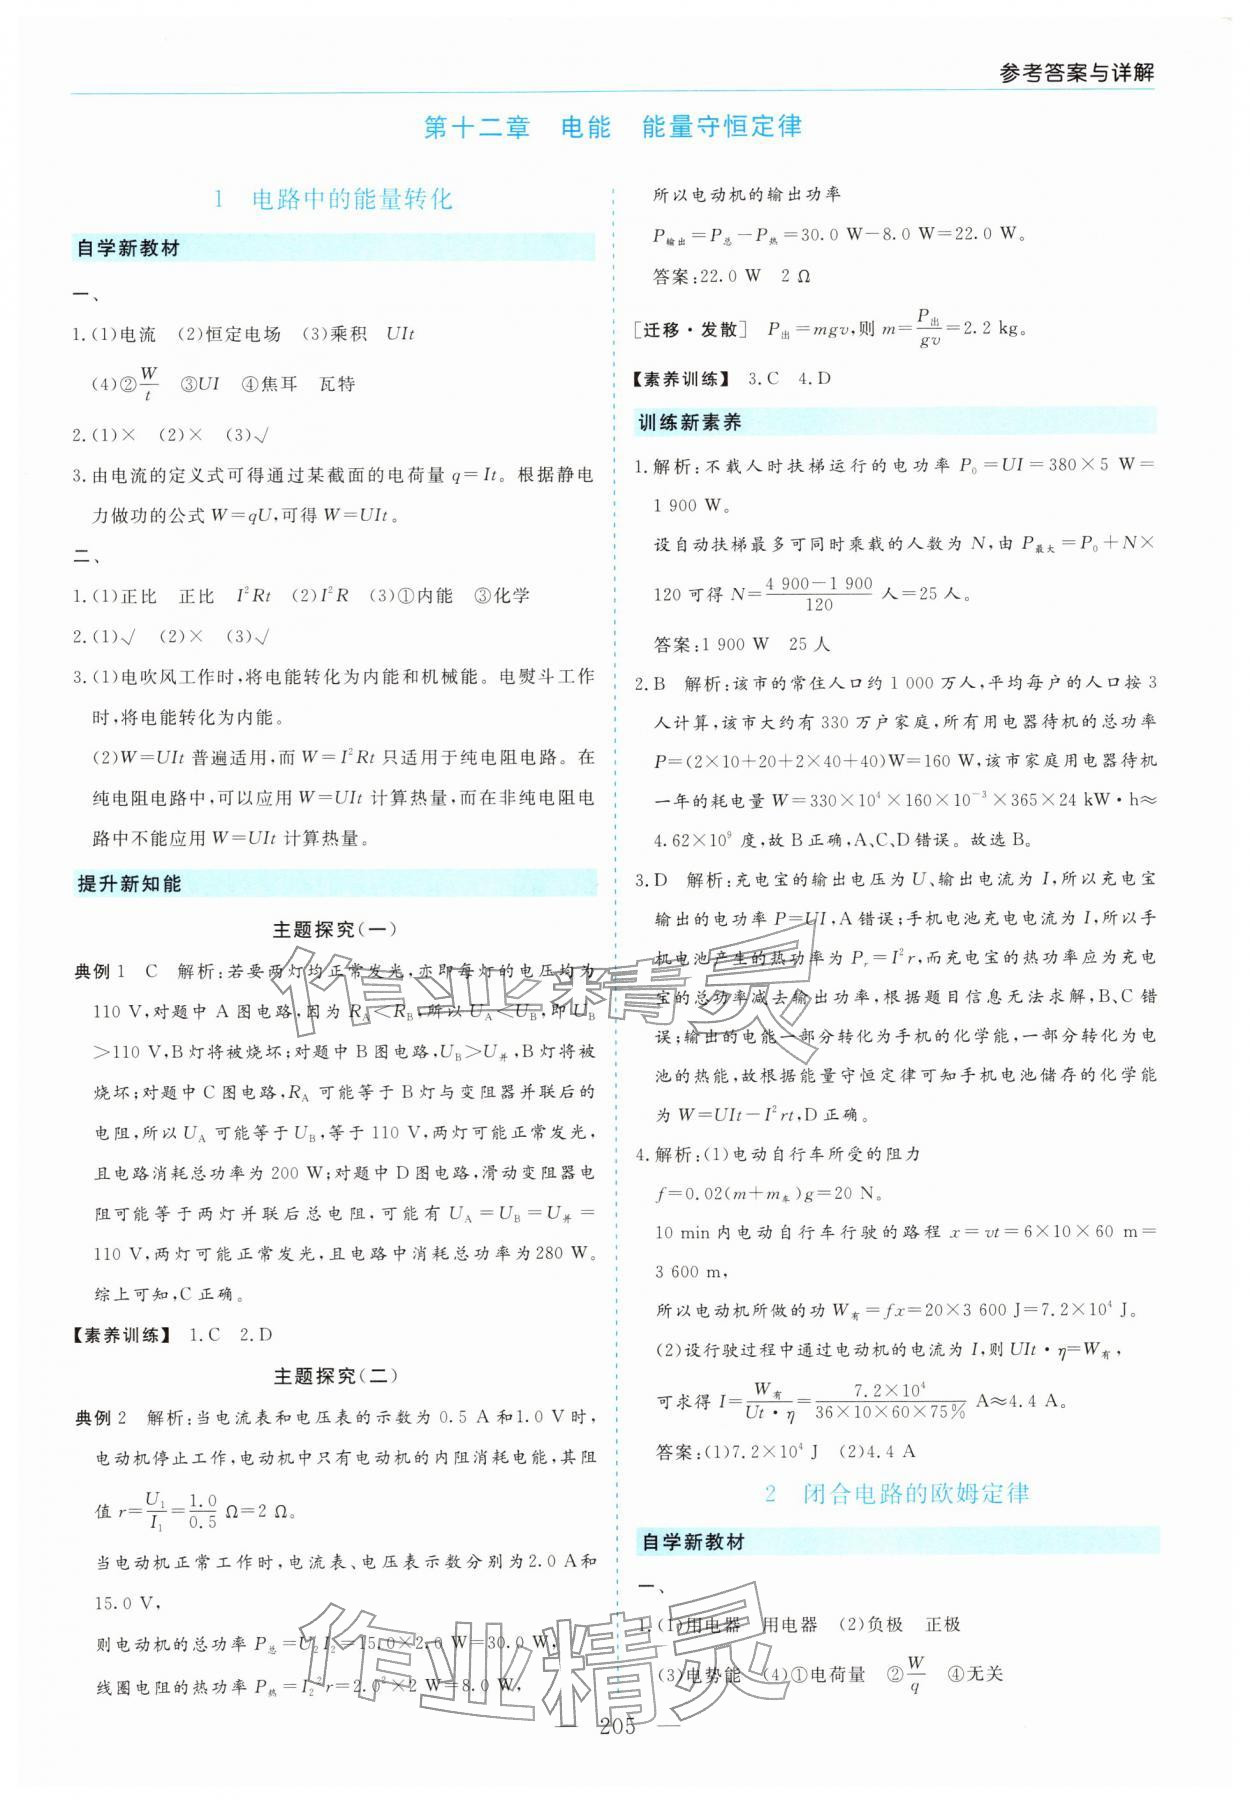 参考答案与详解
第十二章　电能　能量守恒定律
1　电路中的能量转化
自学新教材
一、
1.(1)电流　(2)恒定电场　(3)乘积　UIt
(4)②W/t　③UI　④焦耳　瓦特
2.(1)×　(2)×　(3)√
3.由电流的定义式可得通过某截面的电荷量 q=It。根据静电
力做功的公式 W=qU,可得 W=UIt。
二、
1.(1)正比　正比　I²Rt　(2)I²R　(3)①内能　③化学
2.(1)√　(2)×　(3)√
3.(1)电吹风工作时,将电能转化为内能和机械能。电熨斗工作
时,将电能转化为内能。
(2)W=UIt 普遍适用,而 W=I²Rt 只适用于纯电阻电路。在
纯电阻电路中,可以应用 W=UIt 计算热量,而在非纯电阻电
路中不能应用 W=UIt 计算热量。
提升新知能
主题探究(一)
典例 1　C　解析:若要两灯均正常发光,亦即每灯的电压均为
110 V,对题中 A 图电路,因为 R_A<R_B,所以 U_A<U_B,即 U_B
>110 V,B 灯将被烧坏;对题中 B 图电路,U_B>U_并,B 灯将被
烧坏;对题中 C 图电路,R_A 可能等于 B 灯与变阻器并联后的
电阻,所以 U_A 可能等于 U_B,等于 110 V,两灯可能正常发光,
且电路消耗总功率为 200 W;对题中 D 图电路,滑动变阻器电
阻可能等于两灯并联后总电阻,可能有 U_A=U_B=U_并=
110 V,两灯可能正常发光,且电路中消耗总功率为 280 W。
综上可知,C 正确。
【素养训练】　1.C　2.D
主题探究(二)
典例 2　解析:当电流表和电压表的示数为 0.5 A 和 1.0 V 时,
电动机停止工作,电动机中只有电动机的内阻消耗电能,其阻
值 r=U₁/I₁=1.0/0.5 Ω=2 Ω。
当电动机正常工作时,电流表、电压表示数分别为 2.0 A 和
15.0 V,
则电动机的总功率 P_总=U₂I₂=15.0×2.0 W=30.0 W,
线圈电阻的热功率 P_热=I₂²r=2.0²×2 W=8.0 W,
所以电动机的输出功率
P_输出=P_总−P_热=30.0 W−8.0 W=22.0 W。
答案:22.0 W　2 Ω
[迁移·发散]　P_出=mgv,则 m=P_出/gv=2.2 kg。
【素养训练】　3.C　4.D
训练新素养
1.解析:不载人时扶梯运行的电功率 P₀=UI=380×5 W=
1 900 W。
设自动扶梯最多可同时乘载的人数为 N,由 P_最大=P₀+N×
120 可得 N=(4 900−1 900)/120 人=25 人。
答案:1 900 W　25 人
2.B　解析:该市的常住人口约 1 000 万人,平均每户的人口按 3
人计算,该市大约有 330 万户家庭,所有用电器待机的总功率
P=(2×10+20+2×40+40)W=160 W,该市家庭用电器待机
一年的耗电量 W=330×10⁴×160×10⁻³×365×24 kW·h≈
4.62×10⁹ 度,故 B 正确,A、C、D 错误。故选 B。
3.D　解析:充电宝的输出电压为 U、输出电流为 I,所以充电宝
输出的电功率 P=UI,A 错误;手机电池充电电流为 I,所以手
机电池产生的热功率为 P_r=I²r,而充电宝的热功率应为充电
宝的总功率减去输出功率,根据题目信息无法求解,B、C 错
误;输出的电能一部分转化为手机的化学能,一部分转化为电
池的热能,故根据能量守恒定律可知手机电池储存的化学能
为 W=UIt−I²rt,D 正确。
4.解析:(1)电动自行车所受的阻力
f=0.02(m+m_车)g=20 N。
10 min 内电动自行车行驶的路程 x=vt=6×10×60 m=
3 600 m,
所以电动机所做的功 W_有=fx=20×3 600 J=7.2×10⁴ J。
(2)设行驶过程中通过电动机的电流为 I,则 UIt·η=W_有,
可求得 I=W_有/(Ut·η)=7.2×10⁴/(36×10×60×75%) A≈4.4 A。
答案:(1)7.2×10⁴ J　(2)4.4 A
2　闭合电路的欧姆定律
自学新教材
一、
1.(1)用电器　用电器　(2)负极　正极
(3)电势能　(4)①电荷量　②W/q　④无关
作业精灵
作业精灵
— 205 —